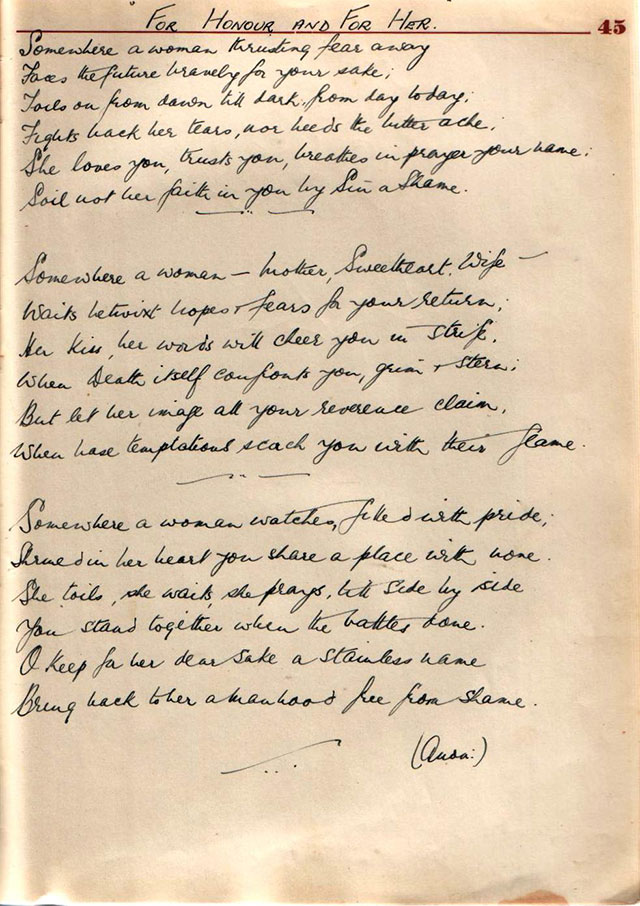 FOR HONOUR AND FOR HER.
45
Somewhere a woman thrusting fear away
Faces the future bravely for your sake;
Toils on from dawn till dark, from day to day;
Fights back her tears, nor heeds the bitter ache;
She loves you, trusts you, breathes in prayer your name;
Soil not her faith in you by Sin a Shame.
Somewhere a woman – mother, Sweetheart, Wife –
Waits betwixt hopes + fears for your return;
Her kiss, her words will cheer you in strife,
When Death itself confronts you, grim + stern;
But let her image all your reverence claim,
When base temptations scach you with their flame.
Somewhere a woman watches, filled with pride;
Shrined in her heart you share a place with none.
She toils, she waits, she prays, till side by side
You stand together when the battles done.
O keep for her dear sake a stainless name
Bring back to her a manhood free from shame.
(Anon:)